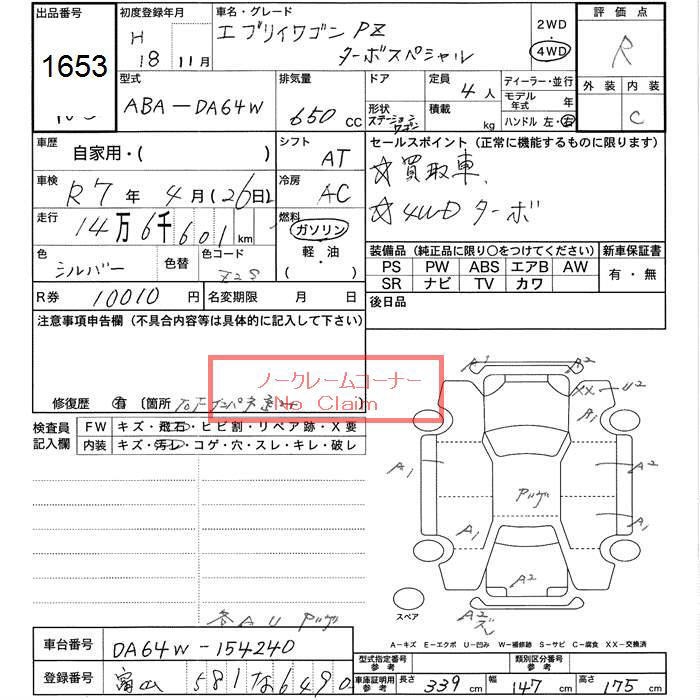 出品番号 初度登録年月 車名・グレード 2WD 評価点
1653 H 18年 11月 エブリイワゴン PZ ターボスペシャル 4WD R
外装 内装
C
型式 排気量 ドア 定員 ディーラー・並行
ABA-DA64W 650 cc 4人 モデル年式 年
形状 ステーションワゴン 積載 kg ハンドル 左・右
車歴 自家用・( ) シフト AT セールスポイント (正常に機能するものに限ります)
☆買取車、
車検 R7年 4月(26日) 冷房 AC
☆4WDターボ
走行 14万6千601km 燃料 ガソリン 軽・油 ( )
装備品 (純正品に限り○をつけてください) 新車保証書
色 シルバー 色替 色コード Z2S
PS PW ABS エアB AW 有・無
SR ナビ TV カワ
R券 10010円 名変期限 月 日 後日品
注意事項申告欄 (不具合内容等は具体的に記入して下さい)
ノークレームコーナー
No Claim
修復歴 有 〔箇所 〕
検査員記入欄 FW キズ・飛石・ヒビ割・リペア跡・X要
内装 キズ・汚レ・コゲ・穴・スレ・キレ・破レ
A1 A2
XX U2
A1
A1 A2
A1 A1
A2
スペア
A2
A=キズ E=エクボ U=凹み W=補修跡 S=サビ C=腐食 XX=交換済
車台番号 DA64W-154240
型式指定番号 参考 類別区分番号 参考
登録番号 富山 581 な 6490
車庫証明用 参考 長さ 339cm 幅 147cm 高さ 175cm